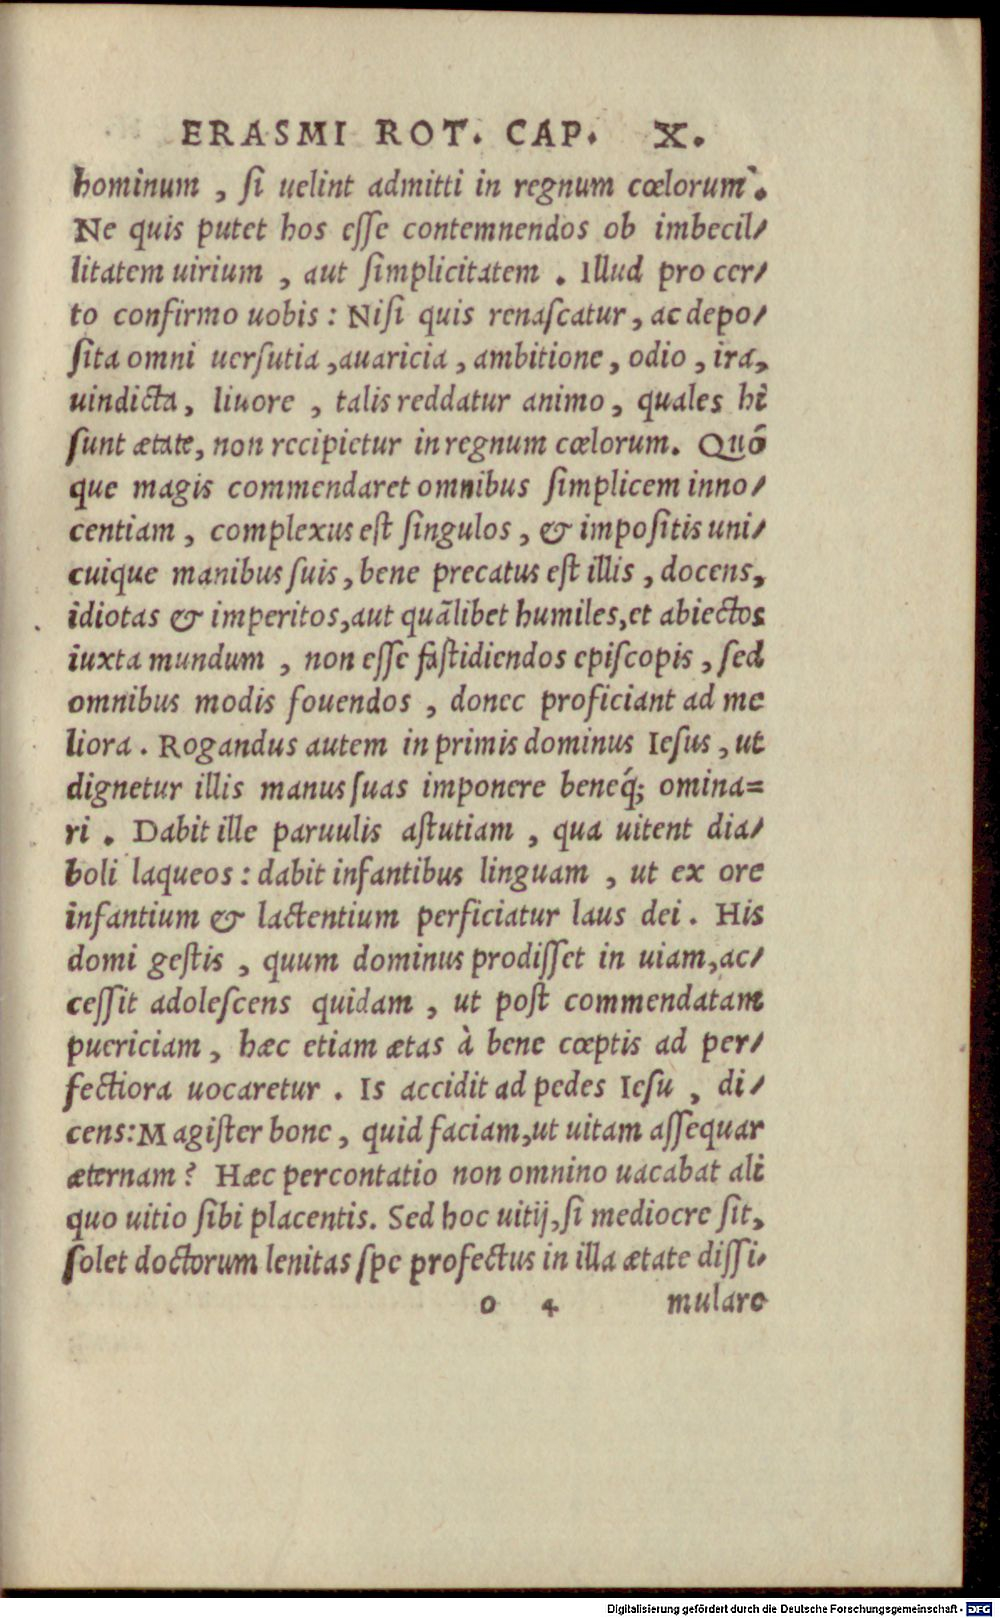 ERASMI ROT. CAP. X.
hominum , ſi uelint admitti in regnum cœlorum.
Ne quis putet hos eſſe contemnendos ob imbecil/
litatem uirium , aut ſimplicitatem . Illud pro cer/
to confirmo uobis : Niſi quis renaſcatur , ac depo/
ſita omni uerſutia ,auaricia , ambitione , odio , ira,
uindicta, liuore , talis reddatur animo, quales hi
ſunt ætate, non recipietur in regnum cœlorum. Quõ
que magis commendaret omnibus ſimplicem inno/
centiam , complexus eſt ſingulos , & impoſitis uni/
cuique manibus ſuis, bene precatus eſt illis , docens,
idiotas & imperitos,aut quãlibet humiles,et abiectos
iuxta mundum , non eſſe faſtidiendos epiſcopis , ſed
omnibus modis fouendos , donec proficiant ad me
liora . Rogandus autem in primis dominus Ieſus , ut
dignetur illis manus ſuas imponere beneq́; omina=
ri . Dabit ille paruulis aſtutiam , qua uitent dia/
boli laqueos : dabit infantibus linguam , ut ex ore
infantium & lactentium perficiatur laus dei . His
domi geſtis , quum dominus prodiſſet in uiam,ac/
ceſſit adoleſcens quidam , ut poſt commendatam
puericiam , hæc etiam ætas à bene cœptis ad per/
fectiora uocaretur . Is accidit ad pedes Ieſu , di/
cens:Magiſter bone, quid faciam,ut uitam aſſequar
æternam? Hæc percontatio non omnino uacabat ali
quo uitio ſibi placentis. Sed hoc uitij,ſi mediocre ſit,
ſolet doctorum lenitas ſpe profectus in illa ætate diſſi/
o 4 mulare
Digitalisierung gefördert durch die Deutsche Forschungsgemeinschaft - DFG